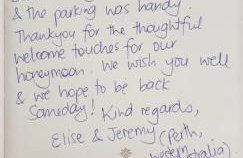 & the parking was handy.
Thankyou for the thoughtful
welcome touches for our
honeymoon. We wish you well
& we hope to be back
Someday! Kind regards,
Elise & Jeremy (Perth,
Western
Australia).